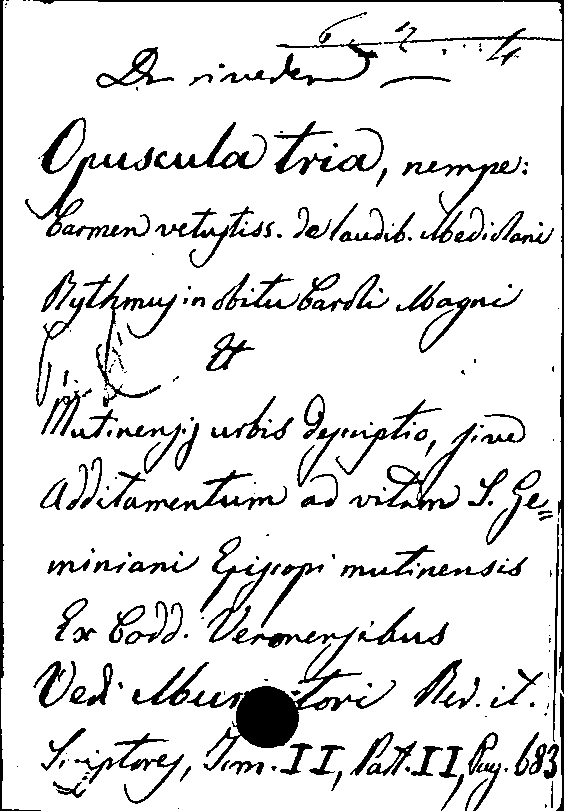 6. 2 4
Da rivedersi —
Opuscula tria, nempe:
Carmen vetustiss. de laudib. Mediolani
Rythmus in obitu Caroli Magni
&
Mutinensis urbis descriptio, sive
Additamentum ad vitam S. Ge=
miniani Episcopi mutinensis
Ex Codd. Veronensibus
Vedi Muratori Rer. it.
Scriptores, Tom. II, Part. II, Pag. 683